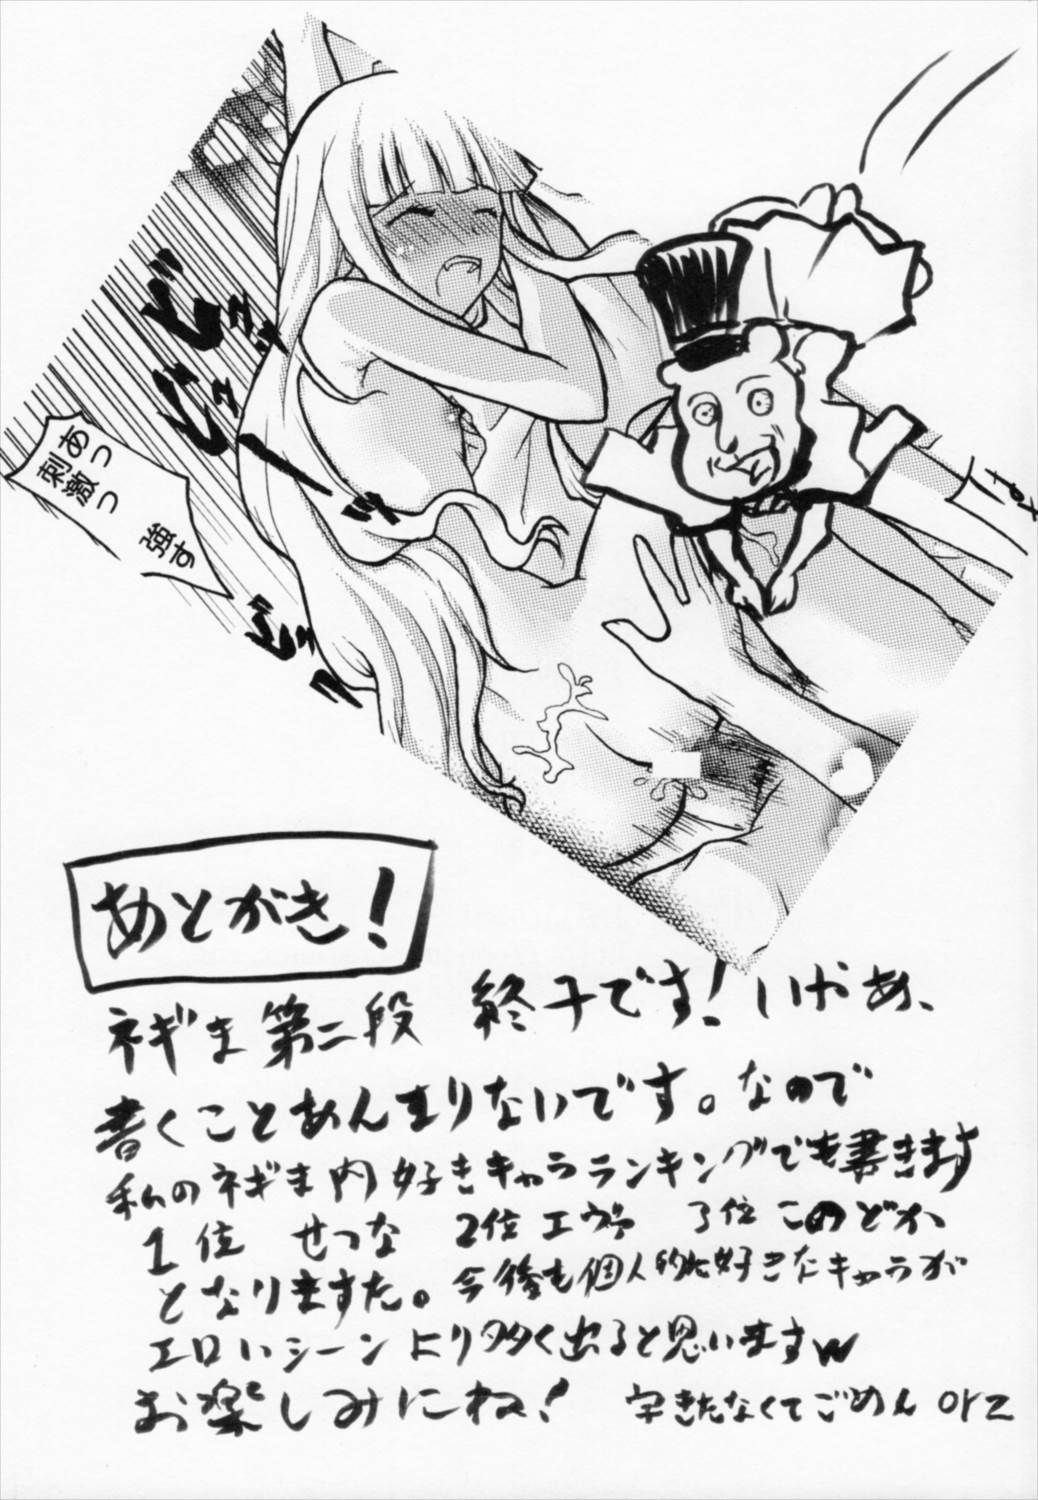 あっ
刺激っ
強す
あとがき！
ネギま第二段 終了です！いやあ、
書くことあんまりないです。なので
私のネギま内好きキャラランキングでも書きます
1位 せつな 2位 エヴァ 3位 このどか
となりますた。今後も個人的に好きなキャラが
エロいシーンより多く出ると思いますw
お楽しみにね！ 字きたなくてごめん orz